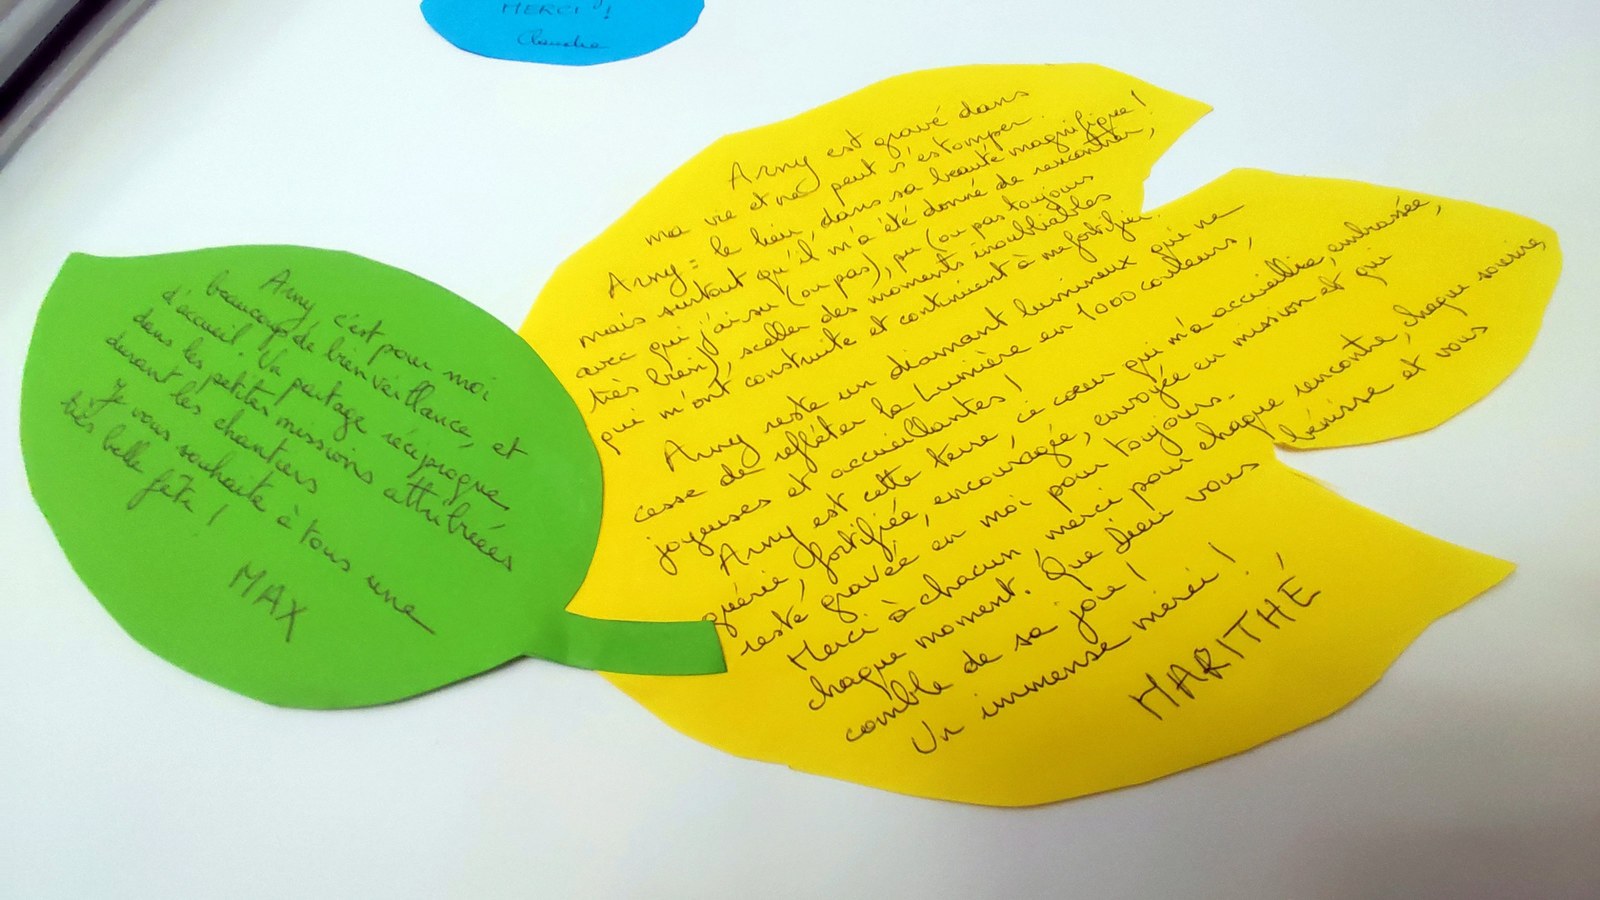 MERCI !
Arny c'est pour moi
beaucoup de bienveillance, et
d'accueil. Un partage réciproque
dans les petites missions attribuées
durant les chantiers
Je vous souhaite à tous une
très belle fête !
MAX
Arny est gravé dans
ma vie et ne peut s'estomper.
Arny = le lieu, dans sa beauté magnifique !
mais surtout qu'il m'a été donné de rencontrer,
avec qui j'ai su (ou pas), pu (ou pas toujours
très bien), sceller des moments inoubliables
qui m'ont construite et continuent à me fortifier.
Arny reste un diamant lumineux qui ne
cesse de refléter la Lumière en 1000 couleurs,
joyeuses et accueillantes !
Arny est cette terre, ce cœur qui m'a accueillie, embrassée,
guérie, fortifiée, encouragée, envoyée en mission et qui
reste gravée en moi pour toujours.
Merci à chacun, merci pour chaque rencontre, chaque sourire,
chaque moment. Que Dieu vous bénisse et vous
comble de sa joie !
Un immense merci !
MARITHÉ